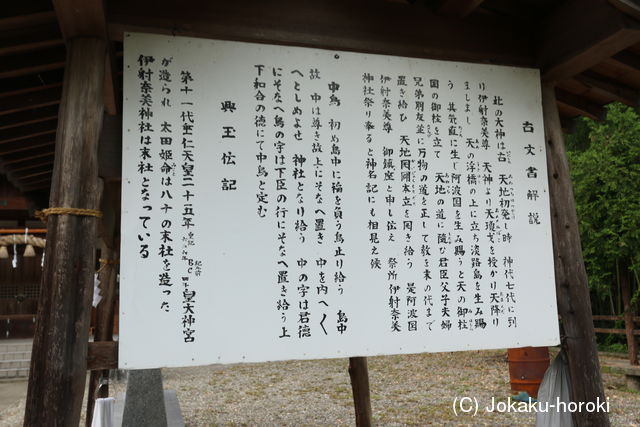 古文書解説
此の大神は古 天地初発し時 神代七代に到
り伊射奈美尊 天神より天瓊戈を授かり天降り
ましまし 天の浮橋の上に立ち淡路島を生み賜
う 其気直に生じ阿波国を生み賜うと天の御柱
国の御柱を立て 天地の道に随む君臣父子夫婦
兄弟朋友並に万物の道を正して教を末の代まで
置き給ひ 天地固剛本立を固き給う 是阿波国
伊射奈美尊 御鎮座と申し伝え 祭所伊射奈美
神社祭り奉ると神名記にも相見え候
中鳥 初め島中に稲を負う鳥止り給う 島中
故 中は尊き故上にそなへ置き 中を内へく
へとしめよせ 神社となり給う 中の字は君徳
にそなへ鳥の字は下臣の行にそなへ置き給う上
下和合の徳にて中鳥と定む
興玉伝記
第十一代垂仁天皇二十五年 紀元前BC 皇大神宮
が造られ 太田姫命は八十の末社を造った
伊射奈美神社は末社となっている
(C) Jokaku-horoki